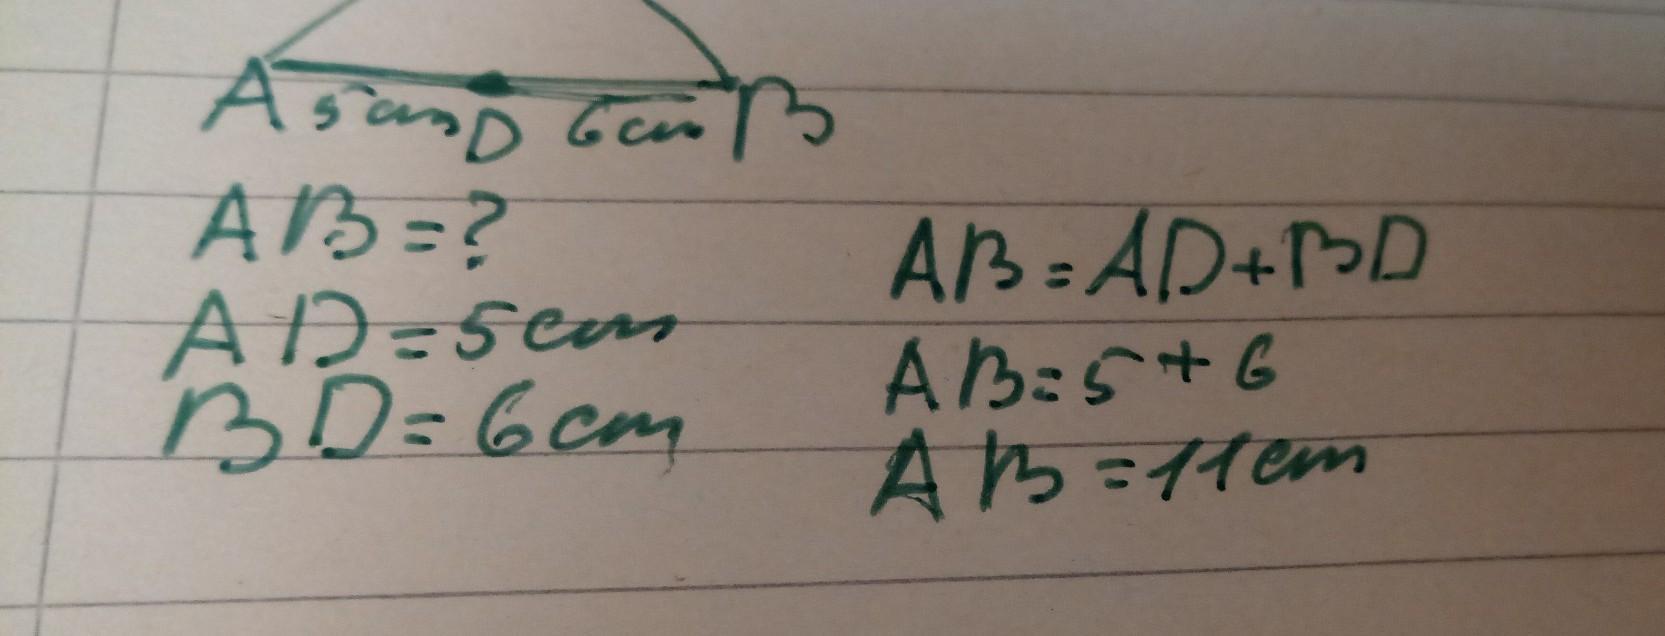 A 5cm D 6cm B
AB=?
AD=5cm
BD=6cm
AB=AD+BD
AB=5+6
AB=11cm